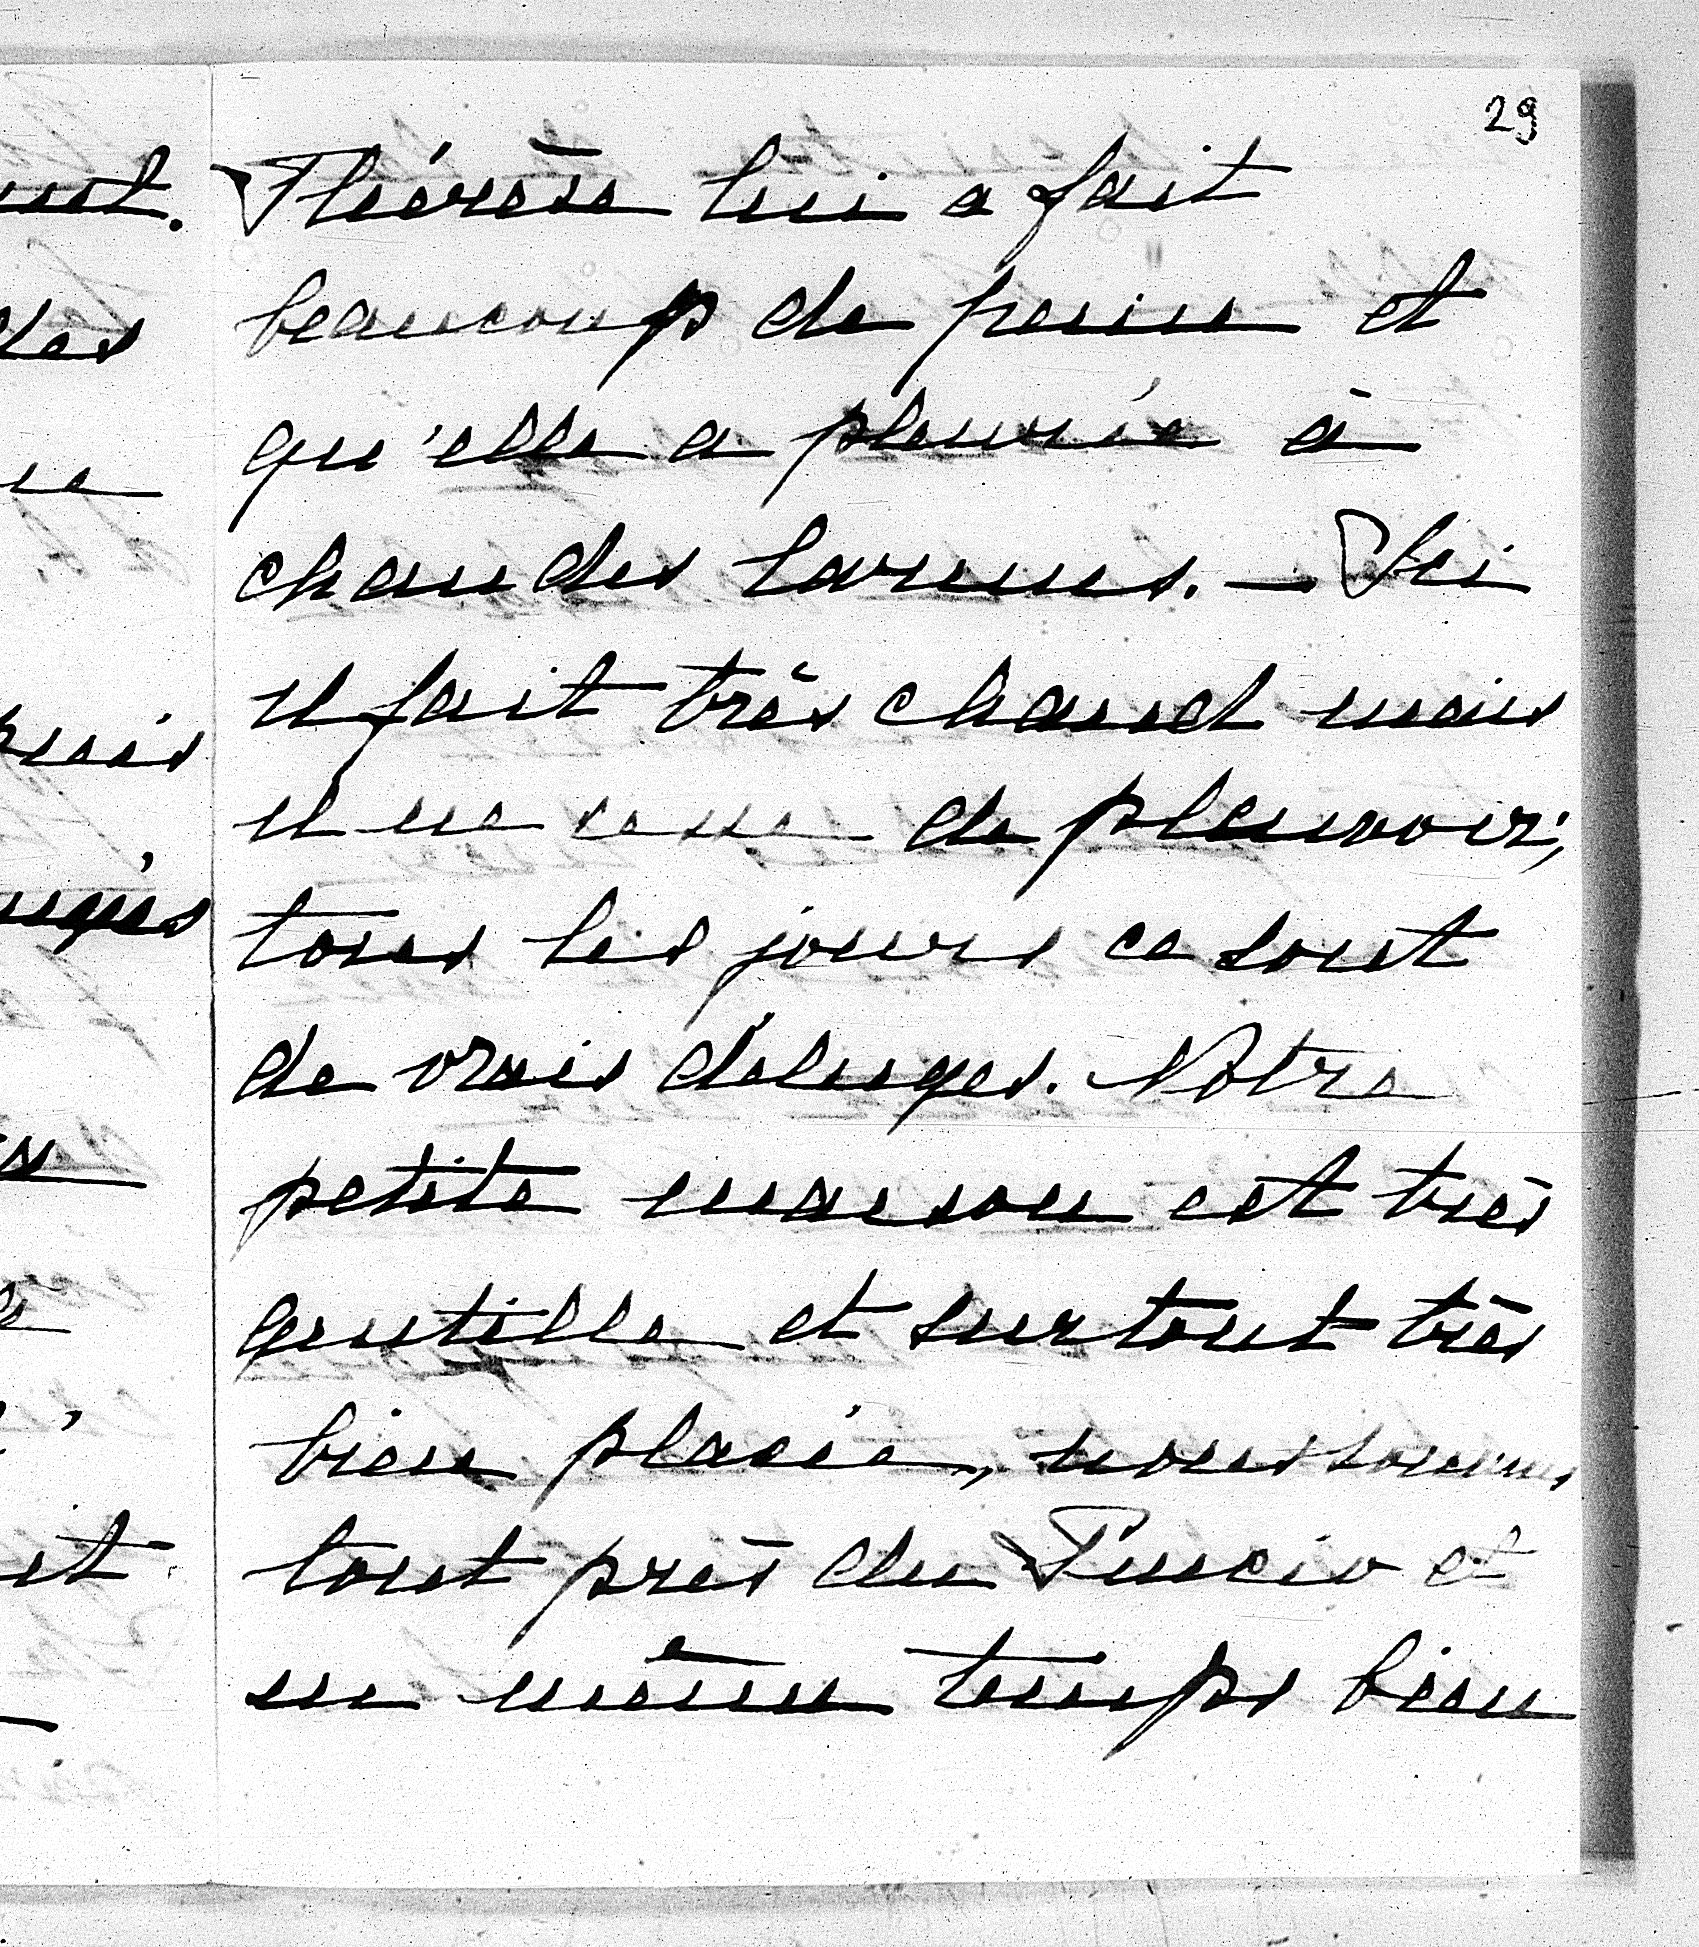 29
Thérèse lui a fait
beaucoup de peine et
qu'elle a pleurée à
chaudes larmes. — Ici
il fait très chaud mais
il ne cesse de pleuvoir;
tous les jours ce sont
de vrais déluges. Notre
petite maison est très
gentille et surtout très
bien placée, nous sommes
tout près du Pincio et
en même temps bien